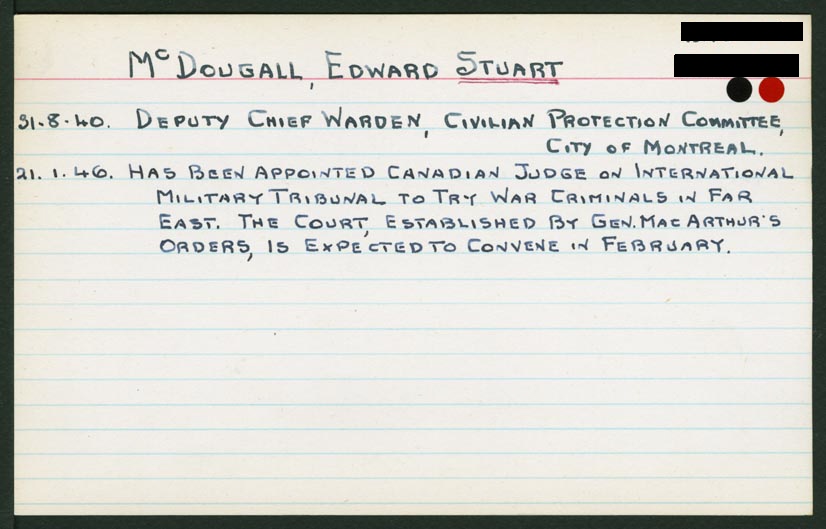 McDougall, Edward Stuart
31.8.40. Deputy Chief Warden, Civilian Protection Committee,
City of Montreal.
21.1.46. Has Been Appointed Canadian Judge on International
Military Tribunal to Try War Criminals in Far
East. The Court, Established By Gen. MacArthur's
Orders, is Expected to Convene in February.